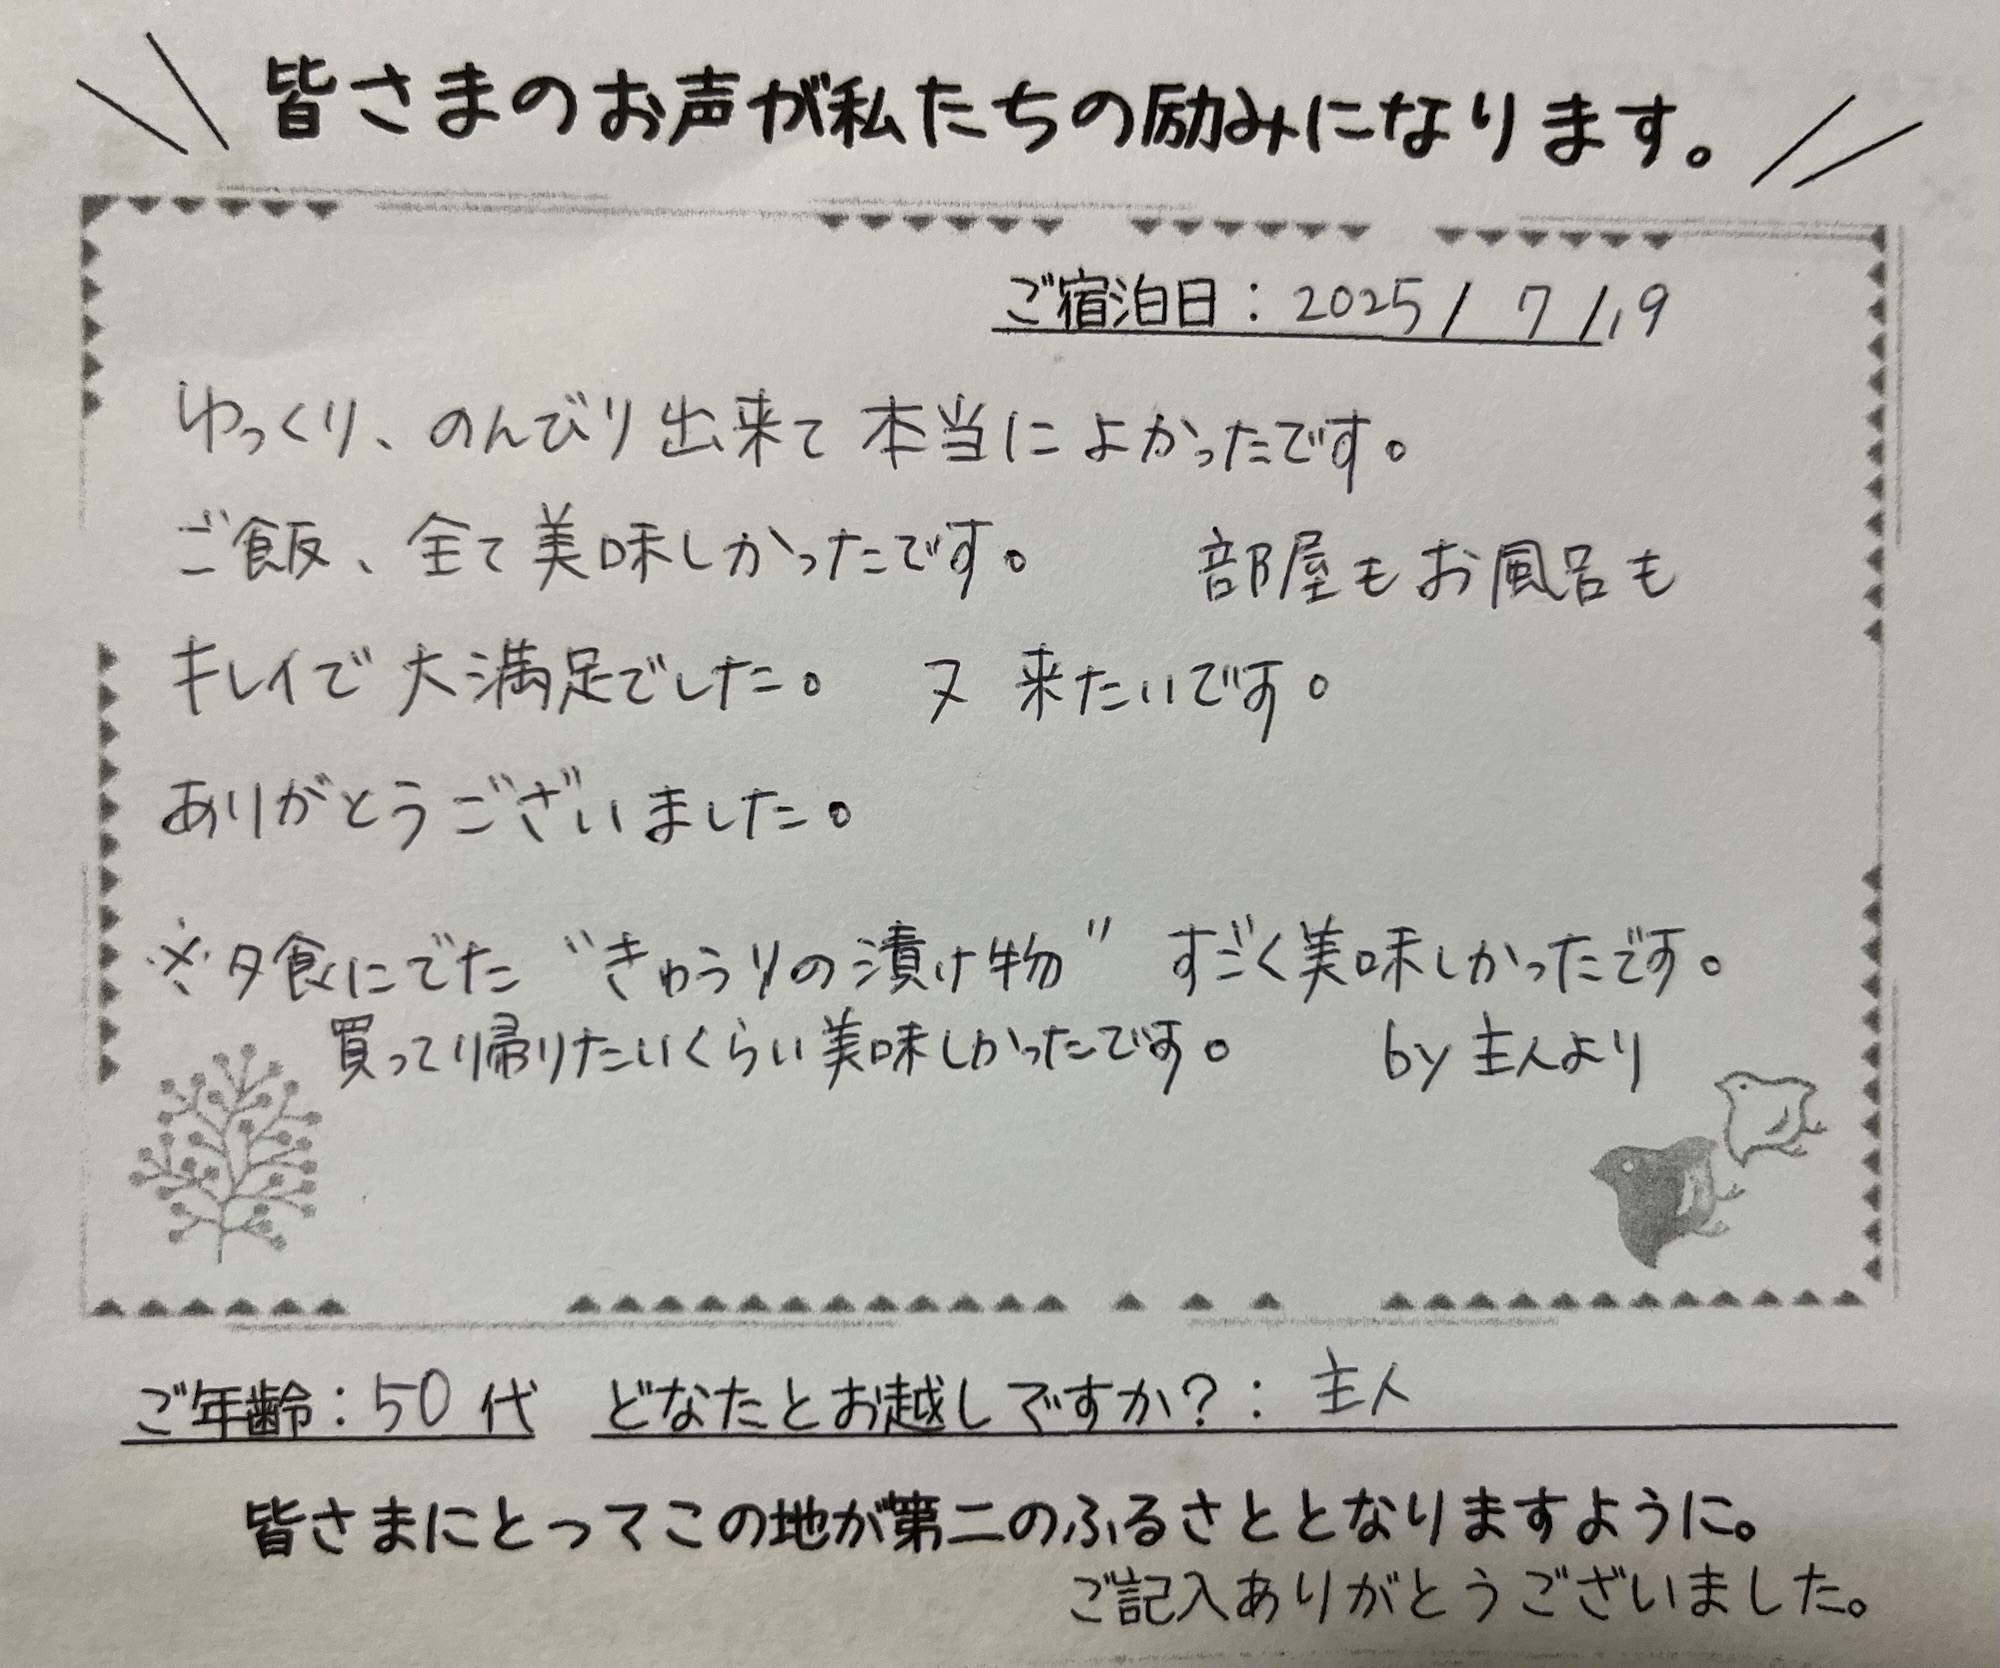 皆さまのお声が私たちの励みになります。
ご宿泊日：2025/7/19
ゆっくり、のんびり出来て本当によかったです。
ご飯、全て美味しかったです。 部屋もお風呂も
キレイで大満足でした。 又来たいです。
ありがとうございました。
※夕食にでた“きゅうりの漬け物”すごく美味しかったです。
買って帰りたいくらい美味しかったです。 by主人より
ご年齢：50代 どなたとお越しですか？：主人
皆さまにとってこの地が第二のふるさととなりますように。
ご記入ありがとうございました。